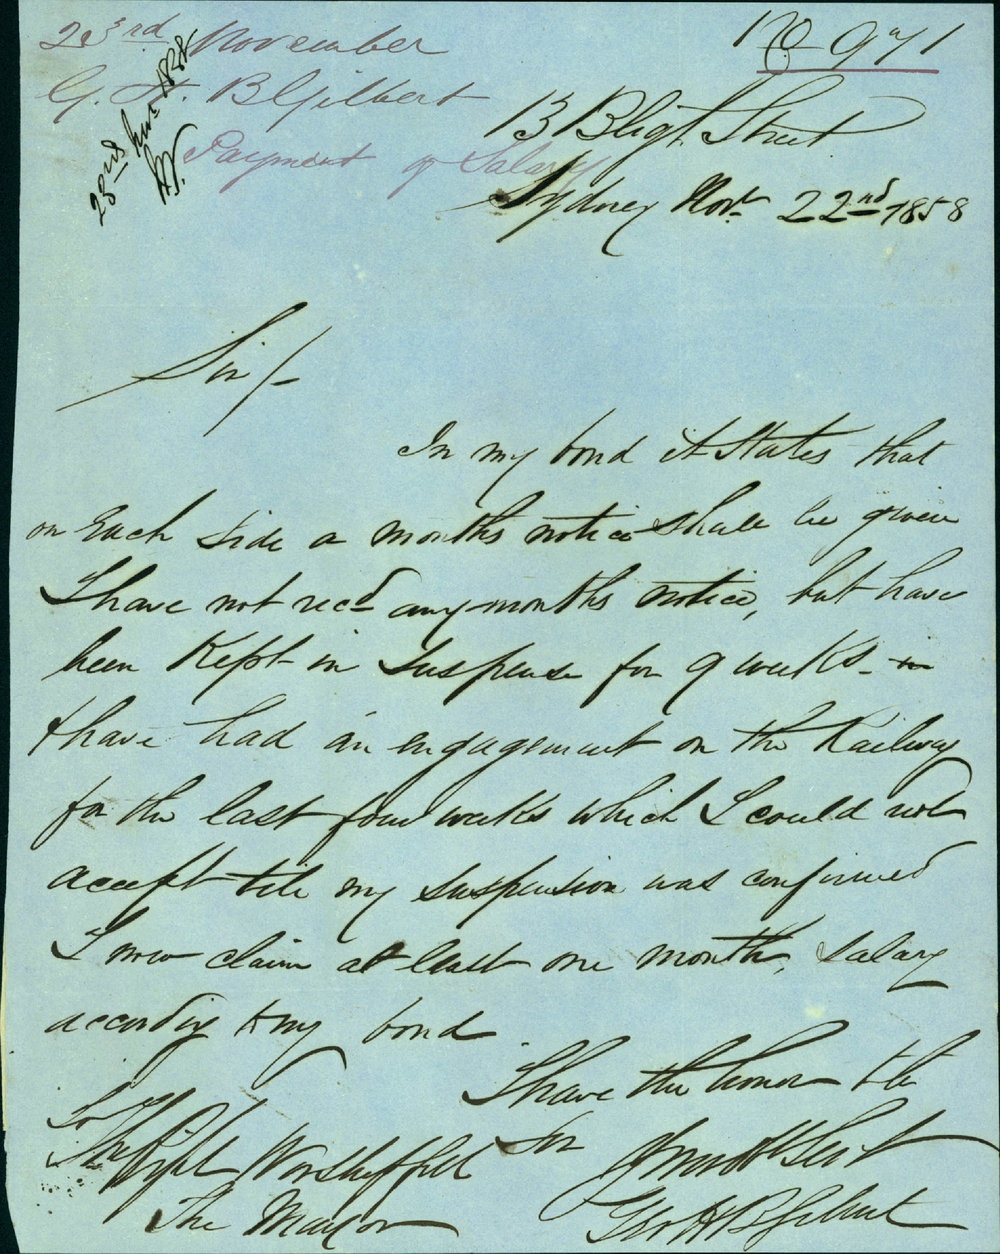 23rd November
G. H. B Gilbert
Payment of Salary
23rd Nov 1858
No 971
13 Bligh Street
Sydney Novr 22nd 1858
Sir/-
In my bond it States that
on Each Side a months notice shall be given
I have not recd any months notice, but have
been Kept in Suspense for 9 weeks
I have had an engagement on the Railway
for the last four weeks which I could not
accept till my suspension was confirmed
I now claim at least one month, Salary
according to my bond
I have the honor to be
Sir
Your Obt Sert
Geo H B Gilbert
To
The Right Worshipfull
The Mayor